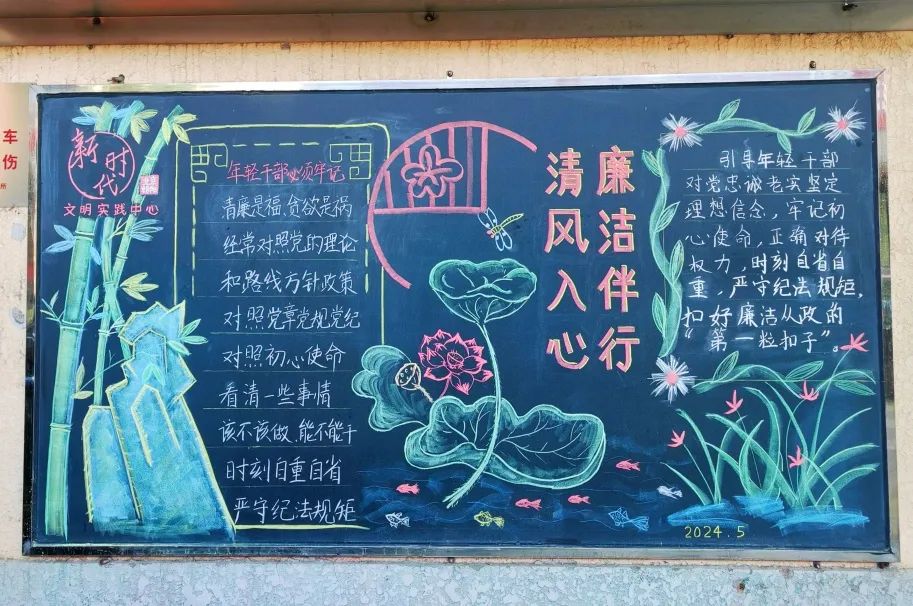 车
伤
所
新时代
文明实践中心
年轻干部必须牢记
清廉是福,贪欲是祸
经常对照党的理论
和路线方针政策
对照党章党规党纪
对照初心使命
看清一些事情
该不该做、能不能干
时刻自重自省
严守纪法规矩
廉洁伴行
清风入心
引导年轻干部
对党忠诚老实坚定
理想信念,牢记初
心使命,正确对待
权力,时刻自省自
重,严守纪法规矩,
扣好廉洁从政的
“第一粒扣子”。
2024.5